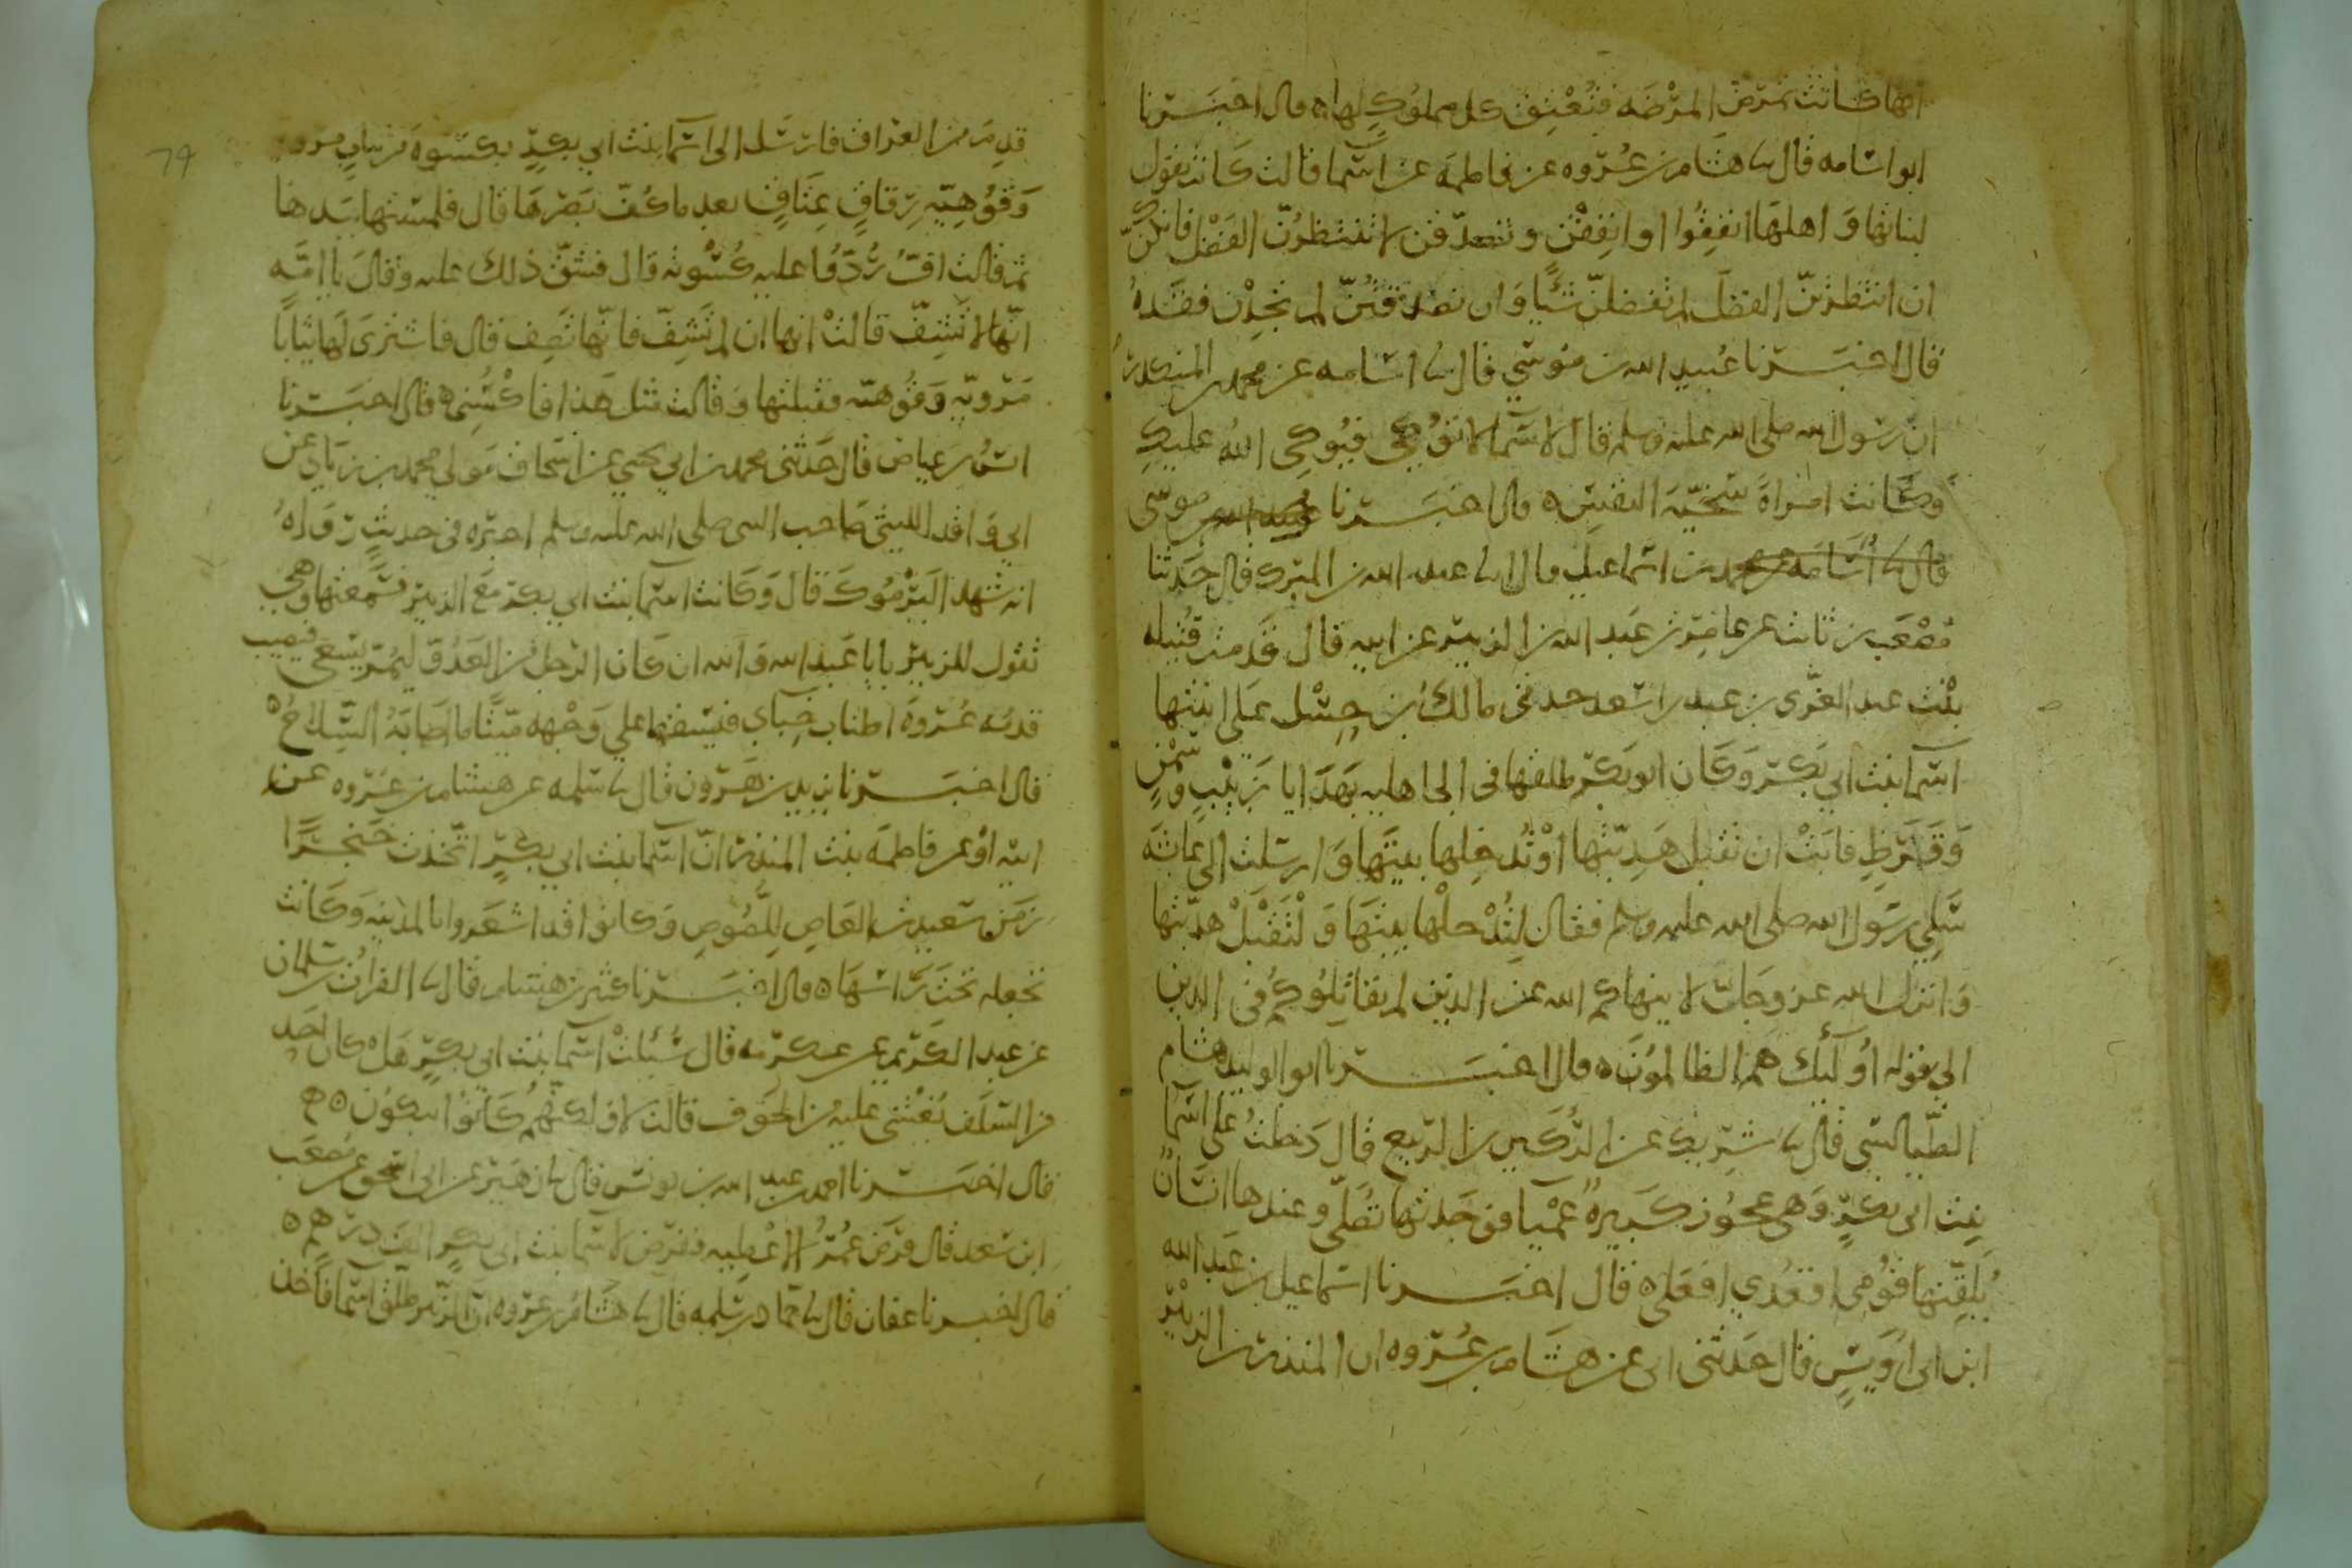 انها كانت تمرض المرضه فتعتق كل مملوك لها ه قال اخبرنا
ابو اسامه قال نا هشام بن عروه عن فاطمه عن اسما قالت كانت تقول
لبناتها و اهلها انفقوا او انفقن وتصدقن لا تنتظرن الفضل فانكن
ان انتظرتن الفضل لم تفضلن شيا وان تصدقتن لم تجدن فقده
قال اخبرنا عبيد الله بن موسي قال نا اسامه عن محمد بن المنكدر
ان رسول الله صلى الله عليه وسلم قال لاسما لا توكي فيوكي الله عليك
وكانت امراة سخية النفس ه قال اخبرنا عبيد الله بن موسى
قال نا اسامه عن محمد بن اسماعيل قال انا عبد الله بن المبرك قال حدثنا
مصعب بن ثابت عن عامر بن عبد الله بن الزبير عن ابيه قال قدمت قتيله
بنت عبد العزى بن عبد اسعد احد بني مالك بن حسل على ابنتها
اسما بنت ابي بكر وكان ابو بكر طلقها في الجاهليه بهدايا زبيب وسمن
وقرظ فابت ان تقبل هديتها او تدخلها بيتها وارسلت الى عائشه
سلي رسول الله صلى الله عليه وسلم فقال لتدخلها بيتها ولتقبل هديتها
وانزل الله عز وجل لا ينهاكم الله عن الذين لم يقاتلوكم في الدين
الى قوله اولئك هم الظالمون ه قال اخبرنا ابو الوليد هشام
الطيالسي قال نا شريك عن الركين بن الربيع قال دخلت على اسما
بنت ابي بكر وهي عجوز كبيرة عميا فوجدتها تصلي وعندها انسان
يلقنها قومي اقعدي افعلي ه قال اخبرنا اسماعيل بن عبد الله
ابن ابي اويس قال حدثني ابي عن هشام بن عروه ان المنذر بن الزبير
79
قدم من العراق فارسل الى اسما بنت ابي بكر بكسوة من ثياب مرويه
وقوهيه رقاق عتاق بعد ما كف بصرها قال فلمستها بيدها
ثم قالت اف ردوا عليه كسوته قال فشق ذلك عليه وقال يا امه
انها لا تشف قالت انها ان لم تشف فانها تصف قال فاشترى لها ثيابا
مرويه وقوهيه فقبلتها وقالت مثل هذا فاكسني ه قال اخبرنا
انس بن عياض قال حدثني محمد بن ابي يحيي عن اسحاق مولي محمد بن زياد عن
ابي واقد الليثي صاحب النبي صلى الله عليه وسلم اخبره في حديث رواه
انه شهد اليرموك قال وكانت اسما بنت ابي بكر مع الزبير فسمعتها وهي
تقول للزبير يابا عبد الله والله ان كان الرجل من العدو ليمر يسعى فتصيب
قدمه عروة اطناب خباي فيسقط علي وجهه ميتا ما اصابه السلاح ه
قال اخبرنا يزيد بن هرون قال نا سلمه عن هشام بن عروه عن
ابيه او عن فاطمه بنت المنذر ان اسما بنت ابي بكر اتخذت خنجرا
زمن سعيد بن العاص للصوص وكانوا قد استعروا بالمدينه وكانت
تجعله تحت راسها ه قال اخبرنا كثير بن هشام قال نا الفرات بن سلمان
عن عبد الكريم عن عكرمه قال سئلت اسما بنت ابي بكر هل كان احد
من السلف يغشى عليه من الخوف قالت لا ولكنهم كانوا يبكون ه
قال اخبرنا احمد بن عبد الله بن يونس قال نا زهير عن ابي اسحق عن مصعب
ابن سعد قال فرض عمر الاعطيه ففرض لاسما بنت ابي بكر الف درهم ه
قال اخبرنا عفان قال نا حماد بن سلمه قال نا هشام بن عروه ان الزبير طلق اسما فاخذ